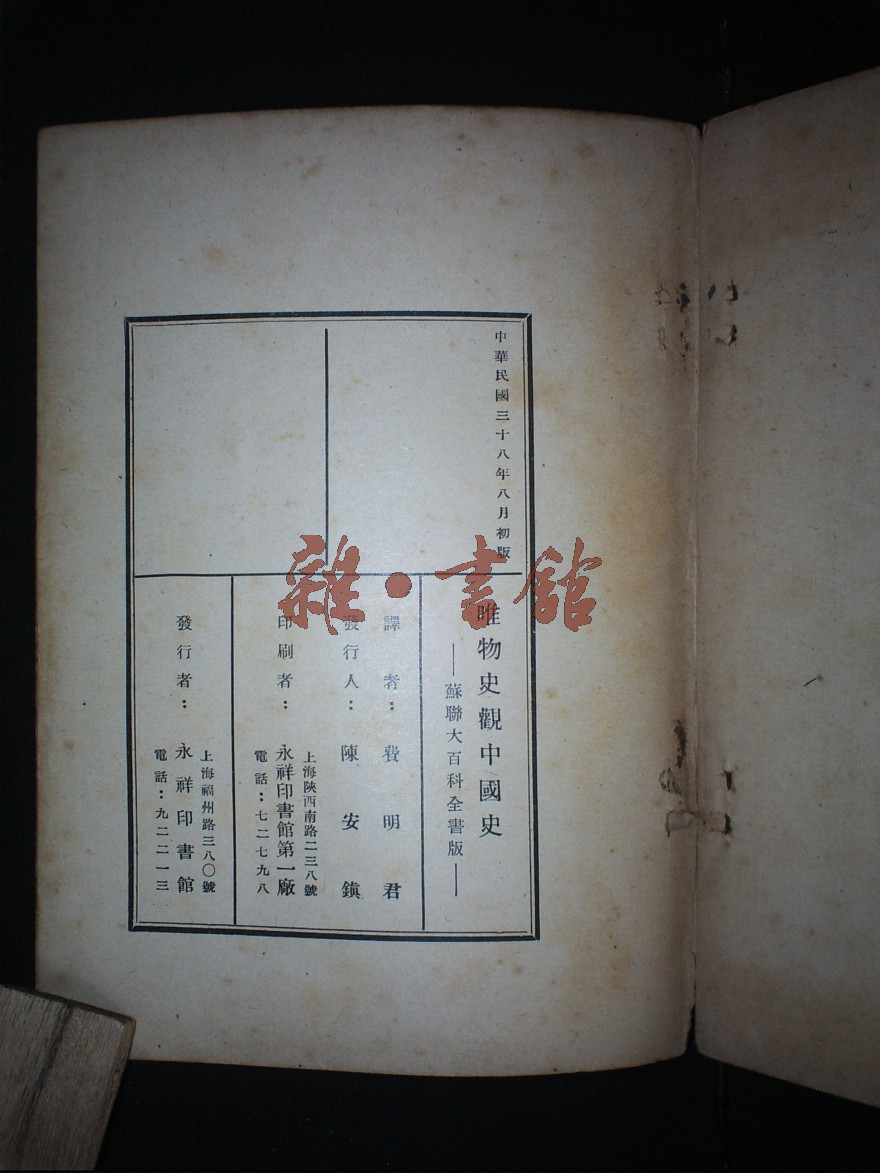 中華民國三十八年八月初版
唯物史觀中國史
——蘇聯大百科全書版——
譯者：費明君
發行人：陳安鎮
印刷者：永祥印書館第一廠
上海陝西南路二三八號
電話：七二七九八
發行者：永祥印書館
上海福州路三八〇號
電話：九二二一三
雜·書館